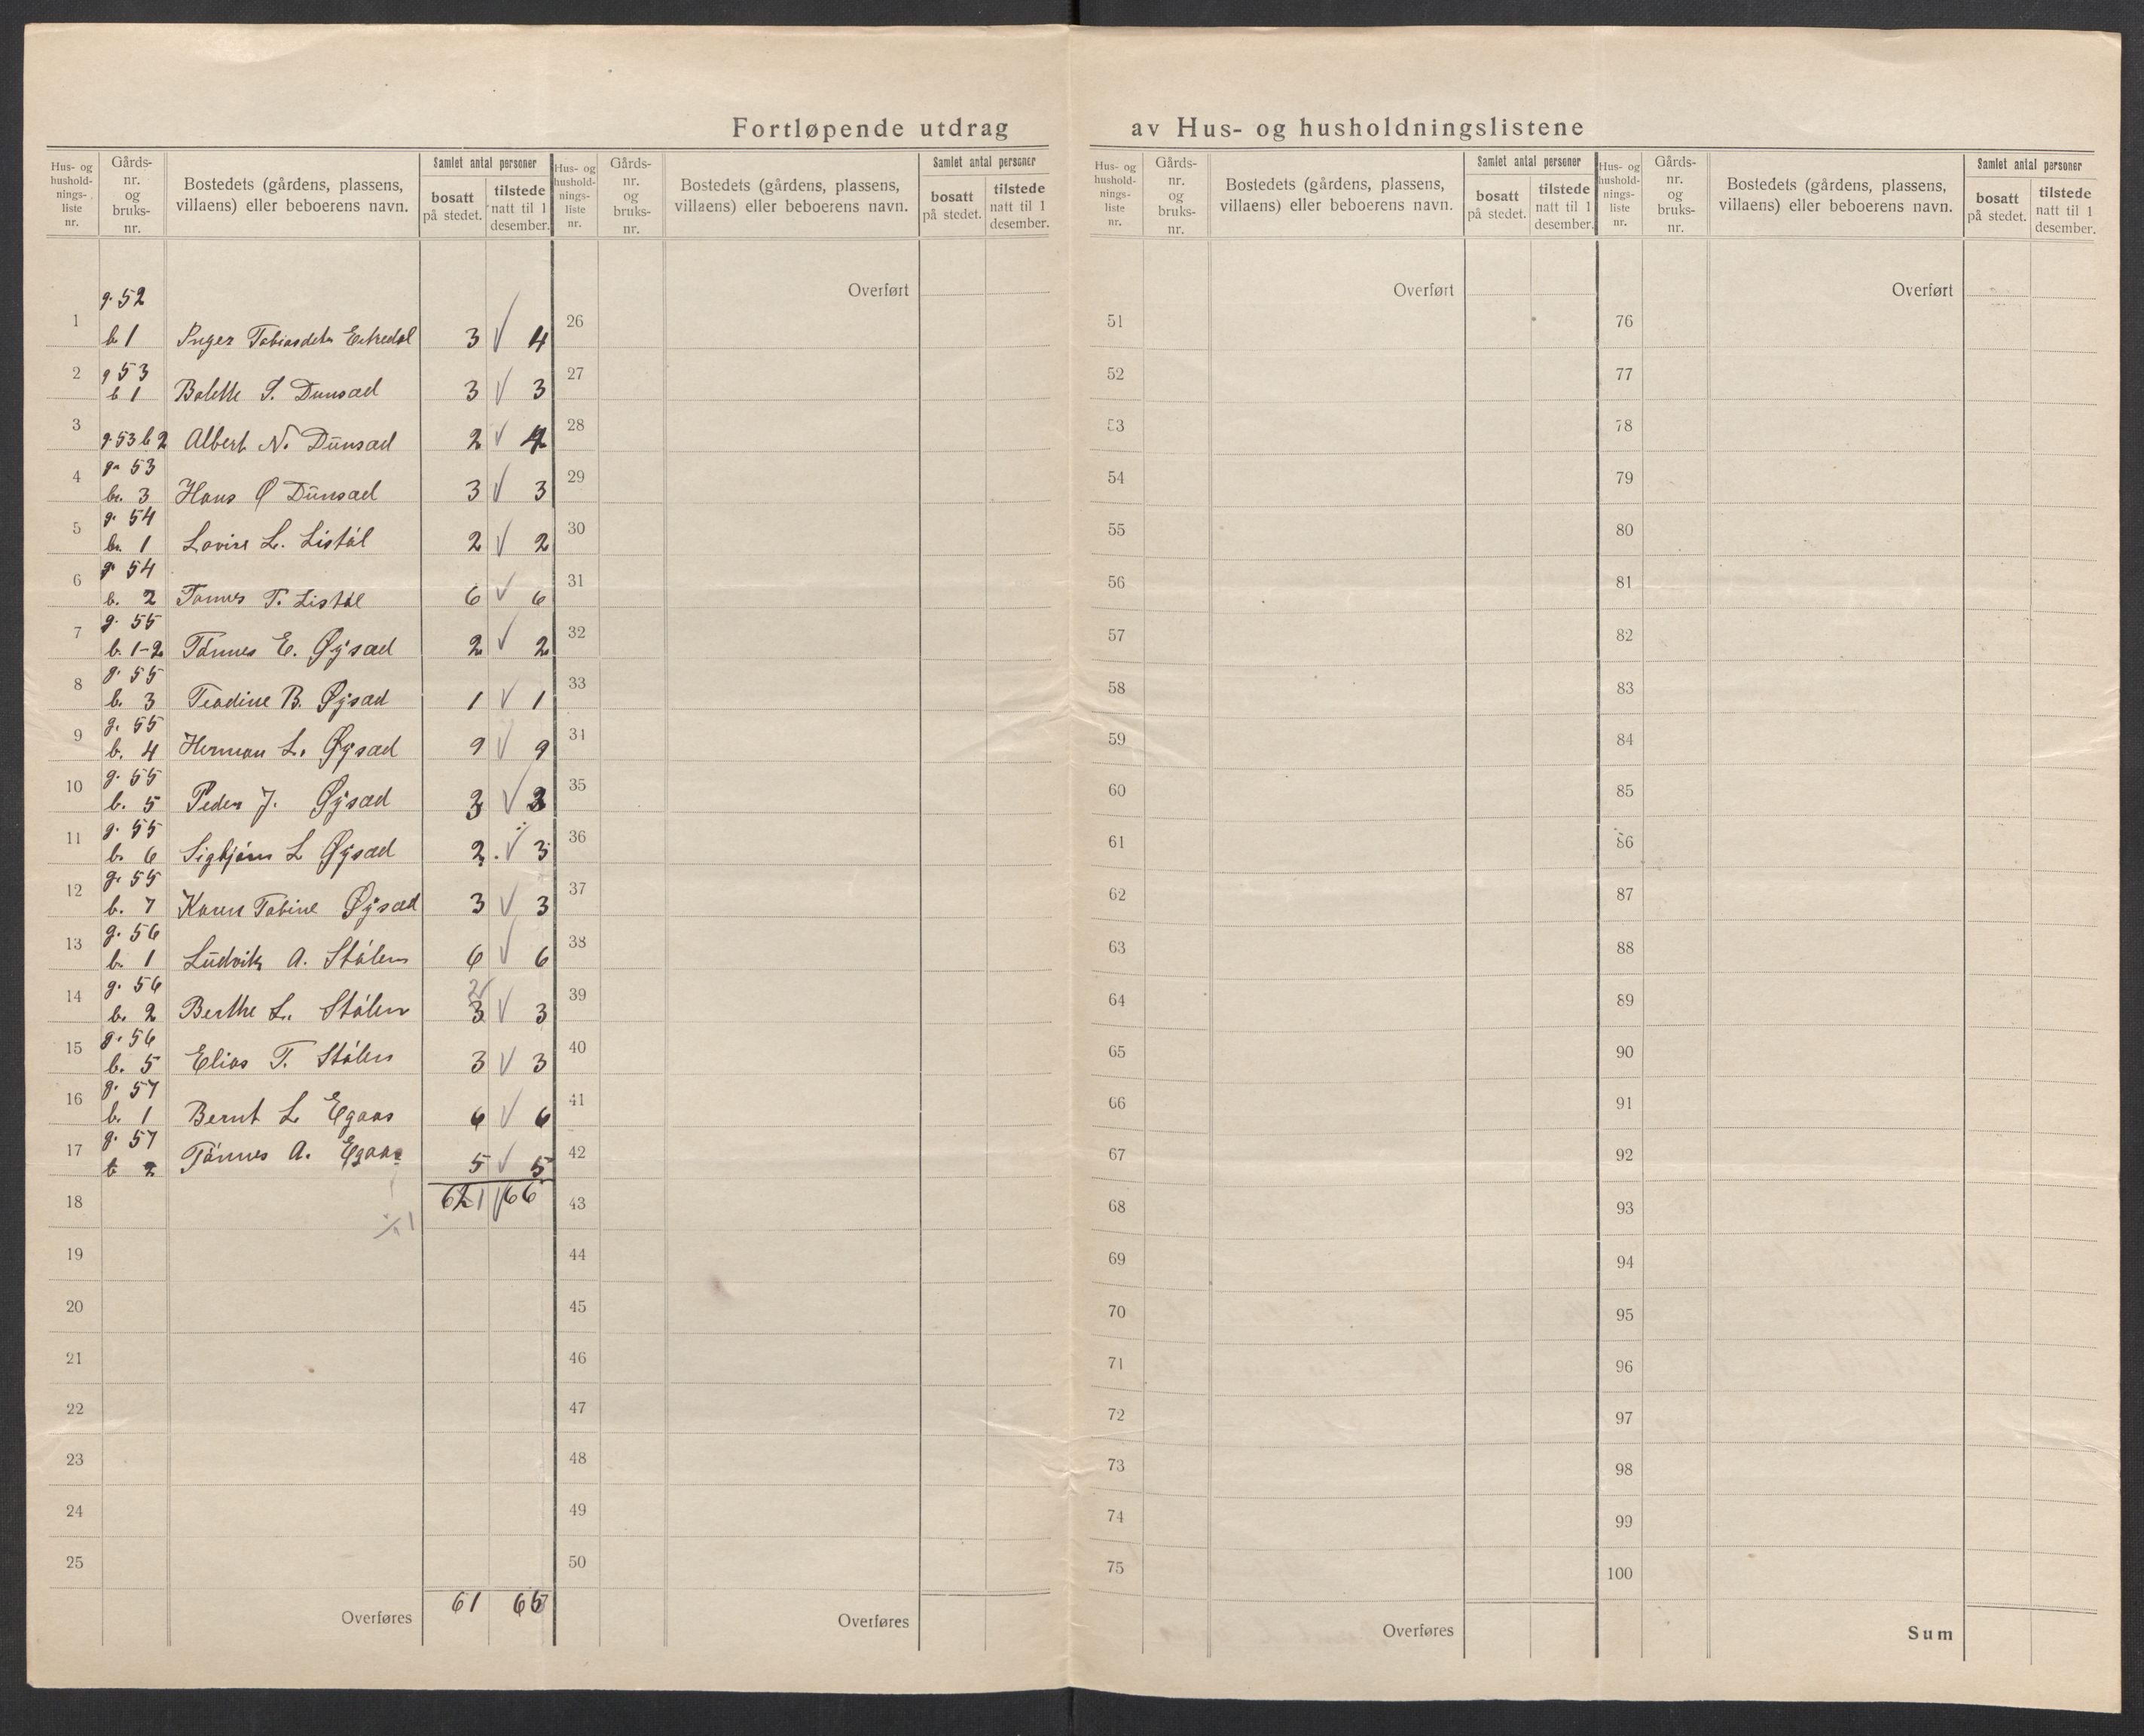 Fortløpende utdrag av Hus- og husholdningslistene
Hus- og hushold-nings-liste nr. | Gårds-nr. og bruks-nr. | Bostedets (gårdens, plassens, villaens) eller beboerens navn. | Samlet antal personer | bosatt på stedet. | tilstede natt til 1 desember.
Hus- og hushold-nings-liste nr. | Gårds-nr. og bruks-nr. | Bostedets (gårdens, plassens, villaens) eller beboerens navn. | Samlet antal personer | bosatt på stedet. | tilstede natt til 1 desember.
Hus- og hushold-nings-liste nr. | Gårds-nr. og bruks-nr. | Bostedets (gårdens, plassens, villaens) eller beboerens navn. | Samlet antal personer | bosatt på stedet. | tilstede natt til 1 desember.
Hus- og hushold-nings-liste nr. | Gårds-nr. og bruks-nr. | Bostedets (gårdens, plassens, villaens) eller beboerens navn. | Samlet antal personer | bosatt på stedet. | tilstede natt til 1 desember.
1 g. 52 b 1 Inger Tobiasdatr 3 √ 4
2 g 53 b 1 Bolette T. Dunsæd 3 √ 3
3 g. 53 b 2 Albert N. Dunsæd 2 √ 4
4 g. 53 br. 3 Hans Ø Dunsæd 3 √ 3
5 g. 54 br. 1 Lovise L. Listøl 2 √ 2
6 g. 54 b. 2 Tønnes T. Listøl 6 √ 6
7 g. 55 b. 1-2 Tønnes E. Øysæd 2 √ 2
8 g. 55 b. 3 Teodine B. Øysæd 1 √ 1
9 g. 55 b. 4 Herman L. Øysæd 9 √ 9
10 g. 55 b. 5 Peder J. Øysæd 3 √ 3
11 g. 55 b. 6 Sigbjørn L Øysæd 2 √ 3
12 g. 55 b. 7 Karen Tobine Øysæd 3 √ 3
13 g. 56 b. 1 Ludvik A. Stølen 6 √ 6
14 g. 56 b. 2 Berthe L. Stølen 2 3 √ 3
15 g. 56 b. 5 Elias T. Stølen 3 √ 3
16 g. 57 b. 1 Bernt L Egaas 6 √ 6
17 g. 57 b 2 Tønnes A. Egaas 5 √ 5
18 621 √ 66
÷ 1
19
20
21
22
23
24
25
Overføres 61 65
Overført
26
27
28
29
30
31
32
33
31
35
36
37
38
39
40
41
42
43
44
45
46
47
48
49
50
Overføres
Overført
51
52
53
54
55
56
57
58
59
60
61
62
63
64
65
66
67
68
69
70
71
72
73
74
75
Overføres
Overført
76
77
78
79
80
81
82
83
84
85
86
87
88
89
90
91
92
93
94
95
96
97
98
99
100
Sum